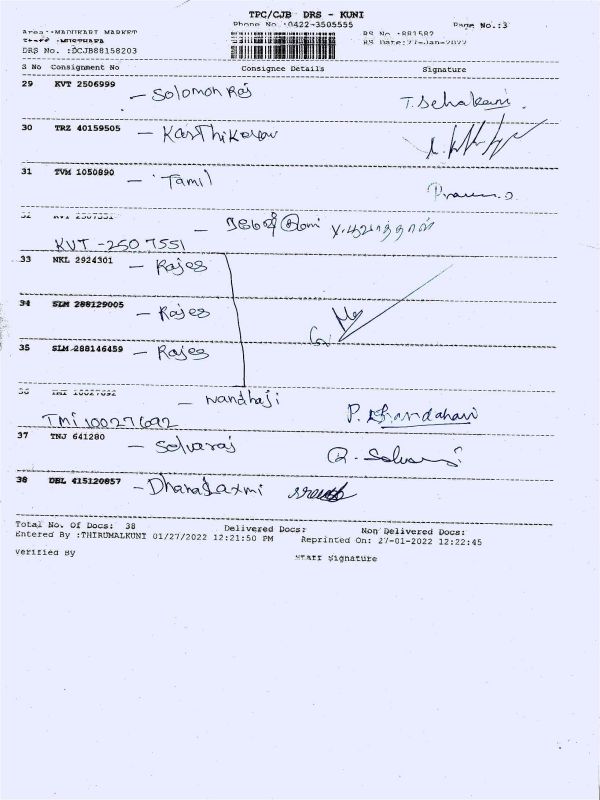 TPC/CJB DRS - KUNI
Phone No :0422-3505555 Page No.:3
Area :MADUKARI MARKET RS No :881587
Staff :MUSTHAFA RS Date:27-Jan-2022
DRS No. :DCJB88158203
S No Consignment No Consignee Details Signature
29 KVT 2506999 - Solomon Raj T. Sehakani.
30 TRZ 40159505 - Karthikeran
31 TVM 1050890 - Tamil
32 KVT 2507551 -
KVT - 2507551
33 NKL 2924301 - Rajes
34 SLM 288129005 - Rajes
35 SLM 288146459 - Rajes
36 TMI 10027692 - Nandhaji
TMI 10027692
37 TNJ 641280 - Selvaraj R. Selvaraj
38 DBL 415120857 - Dhanalaxmi
Total No. Of Docs: 38 Delivered Docs: Non Delivered Docs:
Entered By :THIRUMALKUNI 01/27/2022 12:21:50 PM Reprinted On: 27-01-2022 12:22:45
Verified By STAFF Signature